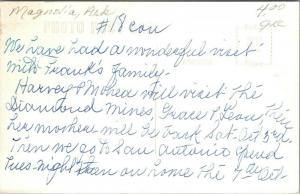 Magnolia, Ark
4.00
#18 cou
We have had a wonderful visit
with Frank's family.
Harvey & Mohea will visit the
Diamond Mines, Grace & Leon, They
her mother will be back Sat. Oct 5th,
Then we go to San Antonio spend
Tues-night then on home the 7th Oct-